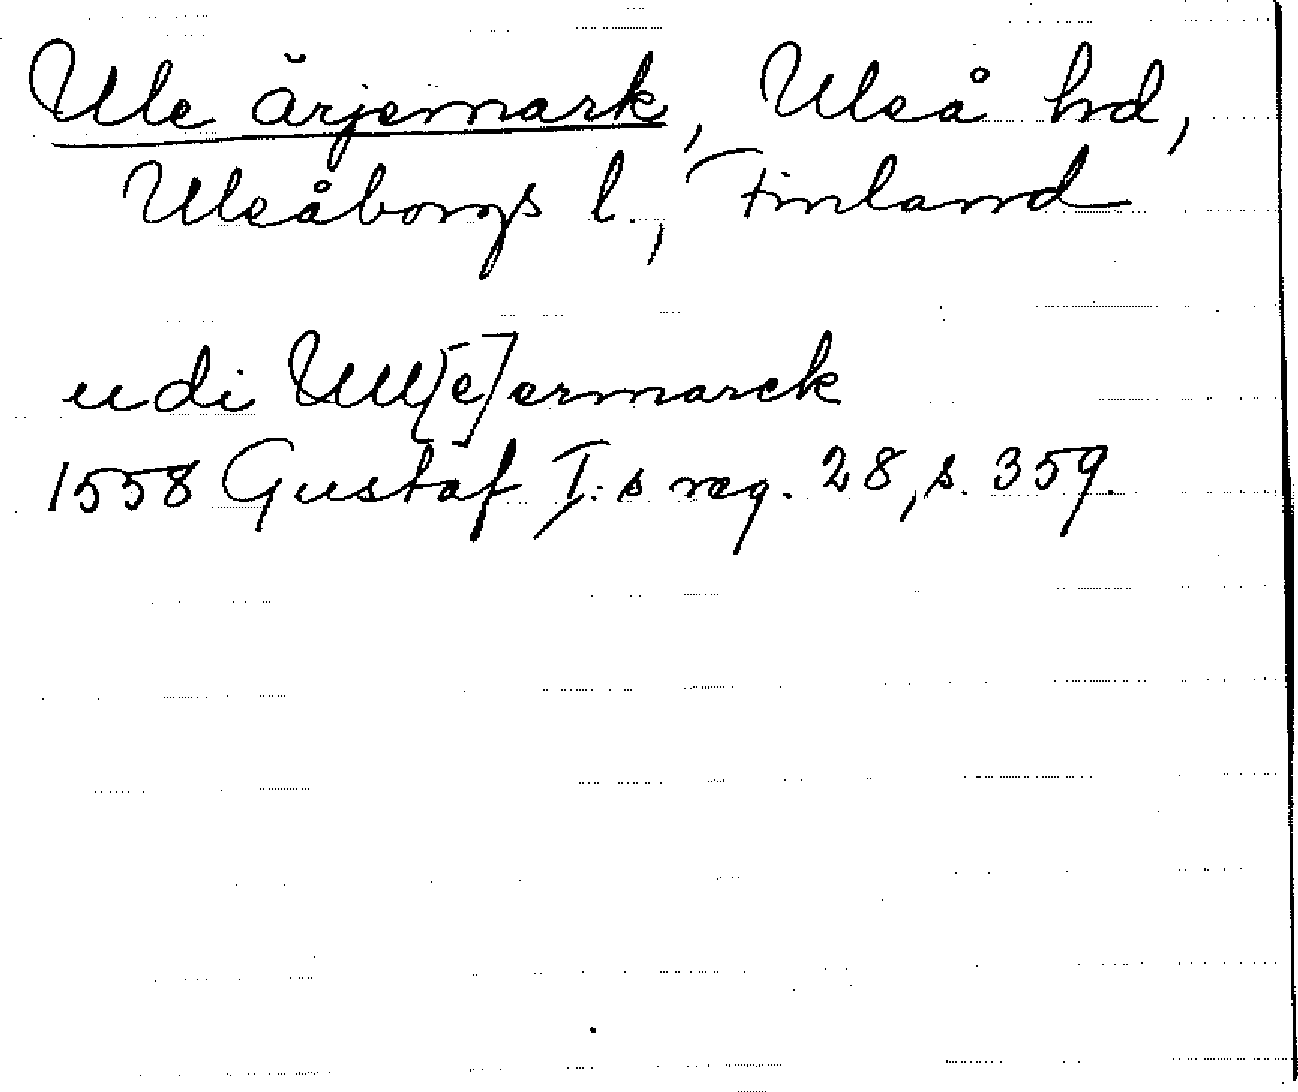 Ule ärjemark, Uleå hd,
Uleåborgs l., Finland
udi Ull[e]ermarck
1558 Gustaf I:s reg. 28, s. 359.